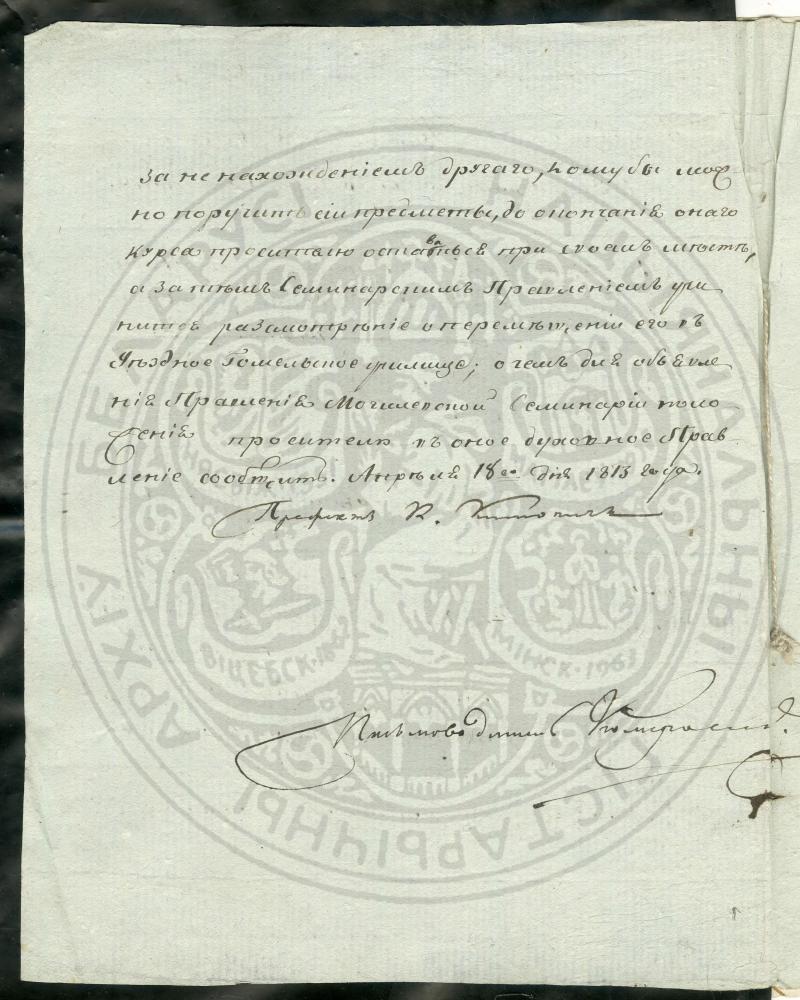 за не нахожденіемъ другаго, кому бы мож
но поручить сіи предметы, до окончанія онаго
курса просителю оставатьсе при своемъ мѣстѣ,
а затѣмъ Семинарскимъ Правленіемъ учи
нится разсмотрѣніе о перемѣщеніи его въ
Уѣздное Гомельское училище; о чемъ для объявле
нія Правленія Могилевской Семинаріи
просителю въ оное духовное Прав
леніе сообщить. Апрѣля 18го дня 1813 года.
Префектъ К.
Письмоводитель
АРХІЎ БЕЛАРУСІ НАЦЫЯНАЛЬНЫ ГІСТАРЫЧНЫ
ВІЦЕБСК·
МІНСК·